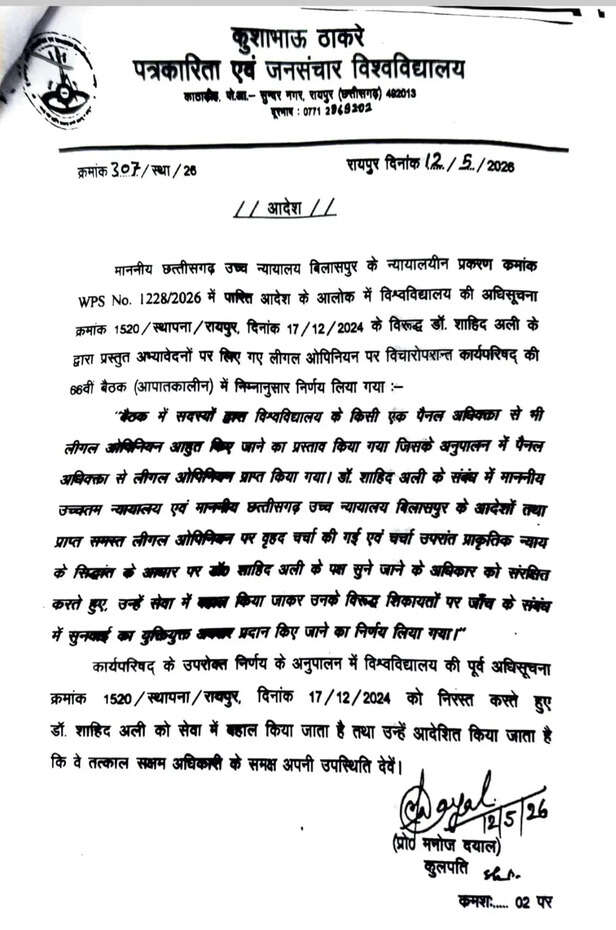 कुशाभाऊ ठाकरे
पत्रकारिता एवं जनसंचार विश्वविद्यालय
काठाडीह, पो.आ.– सुन्दर नगर, रायपुर (छत्तीसगढ़) 492013
दूरभाष : 0771 2969202
क्रमांक 307/स्था/26
रायपुर दिनांक 12/5/2026
// आदेश //
माननीय छत्तीसगढ़ उच्च न्यायालय बिलासपुर के न्यायालयीन प्रकरण कमांक
WPS No. 1228/2026 में पारित आदेश के आलोक में विश्वविद्यालय की अधिसूचना
क्रमांक 1520/स्थापना/रायपुर, दिनांक 17/12/2024 के विरूद्ध डॉ. शाहिद अली के
द्वारा प्रस्तुत अभ्यावेदनों पर लिए गए लीगल ओपिनियन पर विचारोपरान्त कार्यपरिषद् की
66वीं बैठक (आपातकालीन) में निम्नानुसार निर्णय लिया गया :–
"बैठक में सदस्यों द्वारा विश्वविद्यालय के किसी एक पैनल अधिवक्ता से भी
लीगल ओपिनियन आहुत किए जाने का प्रस्ताव किया गया जिसके अनुपालन में पैनल
अधिवक्ता से लीगल ओपिनियन प्राप्त किया गया। डॉ. शाहिद अली के संबंध में माननीय
उच्चतम न्यायालय एवं माननीय छत्तीसगढ़ उच्च न्यायालय बिलासपुर के आदेशों तथा
प्राप्त समस्त लीगल ओपिनियन पर वृहद चर्चा की गई एवं चर्चा उपरांत प्राकृतिक न्याय
के सिद्धांत के आधार पर डॉ0 शाहिद अली के पक्ष सुने जाने के अधिकार को संरक्षित
करते हुए, उन्हें सेवा में बहाल किया जाकर उनके विरूद्ध शिकायतों पर जाँच के संबंध
में सुनवाई का युक्तियुक्त अवसर प्रदान किए जाने का निर्णय लिया गया।"
कार्यपरिषद् के उपरोक्त निर्णय के अनुपालन में विश्वविद्यालय की पूर्व अधिसूचना
क्रमांक 1520/स्थापना/रायपुर, दिनांक 17/12/2024 को निरस्त करते हुए
डॉ. शाहिद अली को सेवा में बहाल किया जाता है तथा उन्हें आदेशित किया जाता है
कि वे तत्काल सक्षम अधिकारी के समक्ष अपनी उपस्थिति देवें।
12/5/26
(प्रो0 मनोज दयाल)
कुलपति
कमशः..... 02 पर